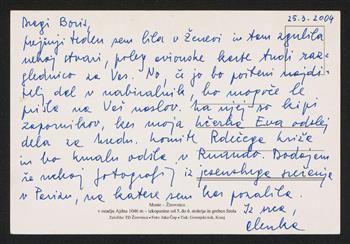 25.3.2004
Dragi Boris,
prejšnji teden sem bila v Ženevi in tam zgubila
nekaj stvari, poleg avionske karte tudi raz-
glednico za Vas. No, če jo bo pošteni najdi-
telj dal v nabiralnik bo mogoče le
prišla na Vaš naslov. Na njej so kipi
zapornikov, ker moja hčerka Eva odslej
dela za medn. komite Rdečega križa
in bo kmalu odšla v Ruando. Dodajam
še nekaj fotografij iz jesenskega srečanja
v Parizu, na katere sem kar pozabila.
Iz srca,
Alenka
Most – Žirovnica
v ozadju Ajdna 1046 m – izkopanine od 5. do 6. stoletja in greben Stola
Založilo: TD Žirovnica • Foto: Jaka Čop • Tisk: Gorenjski tisk, Kranj